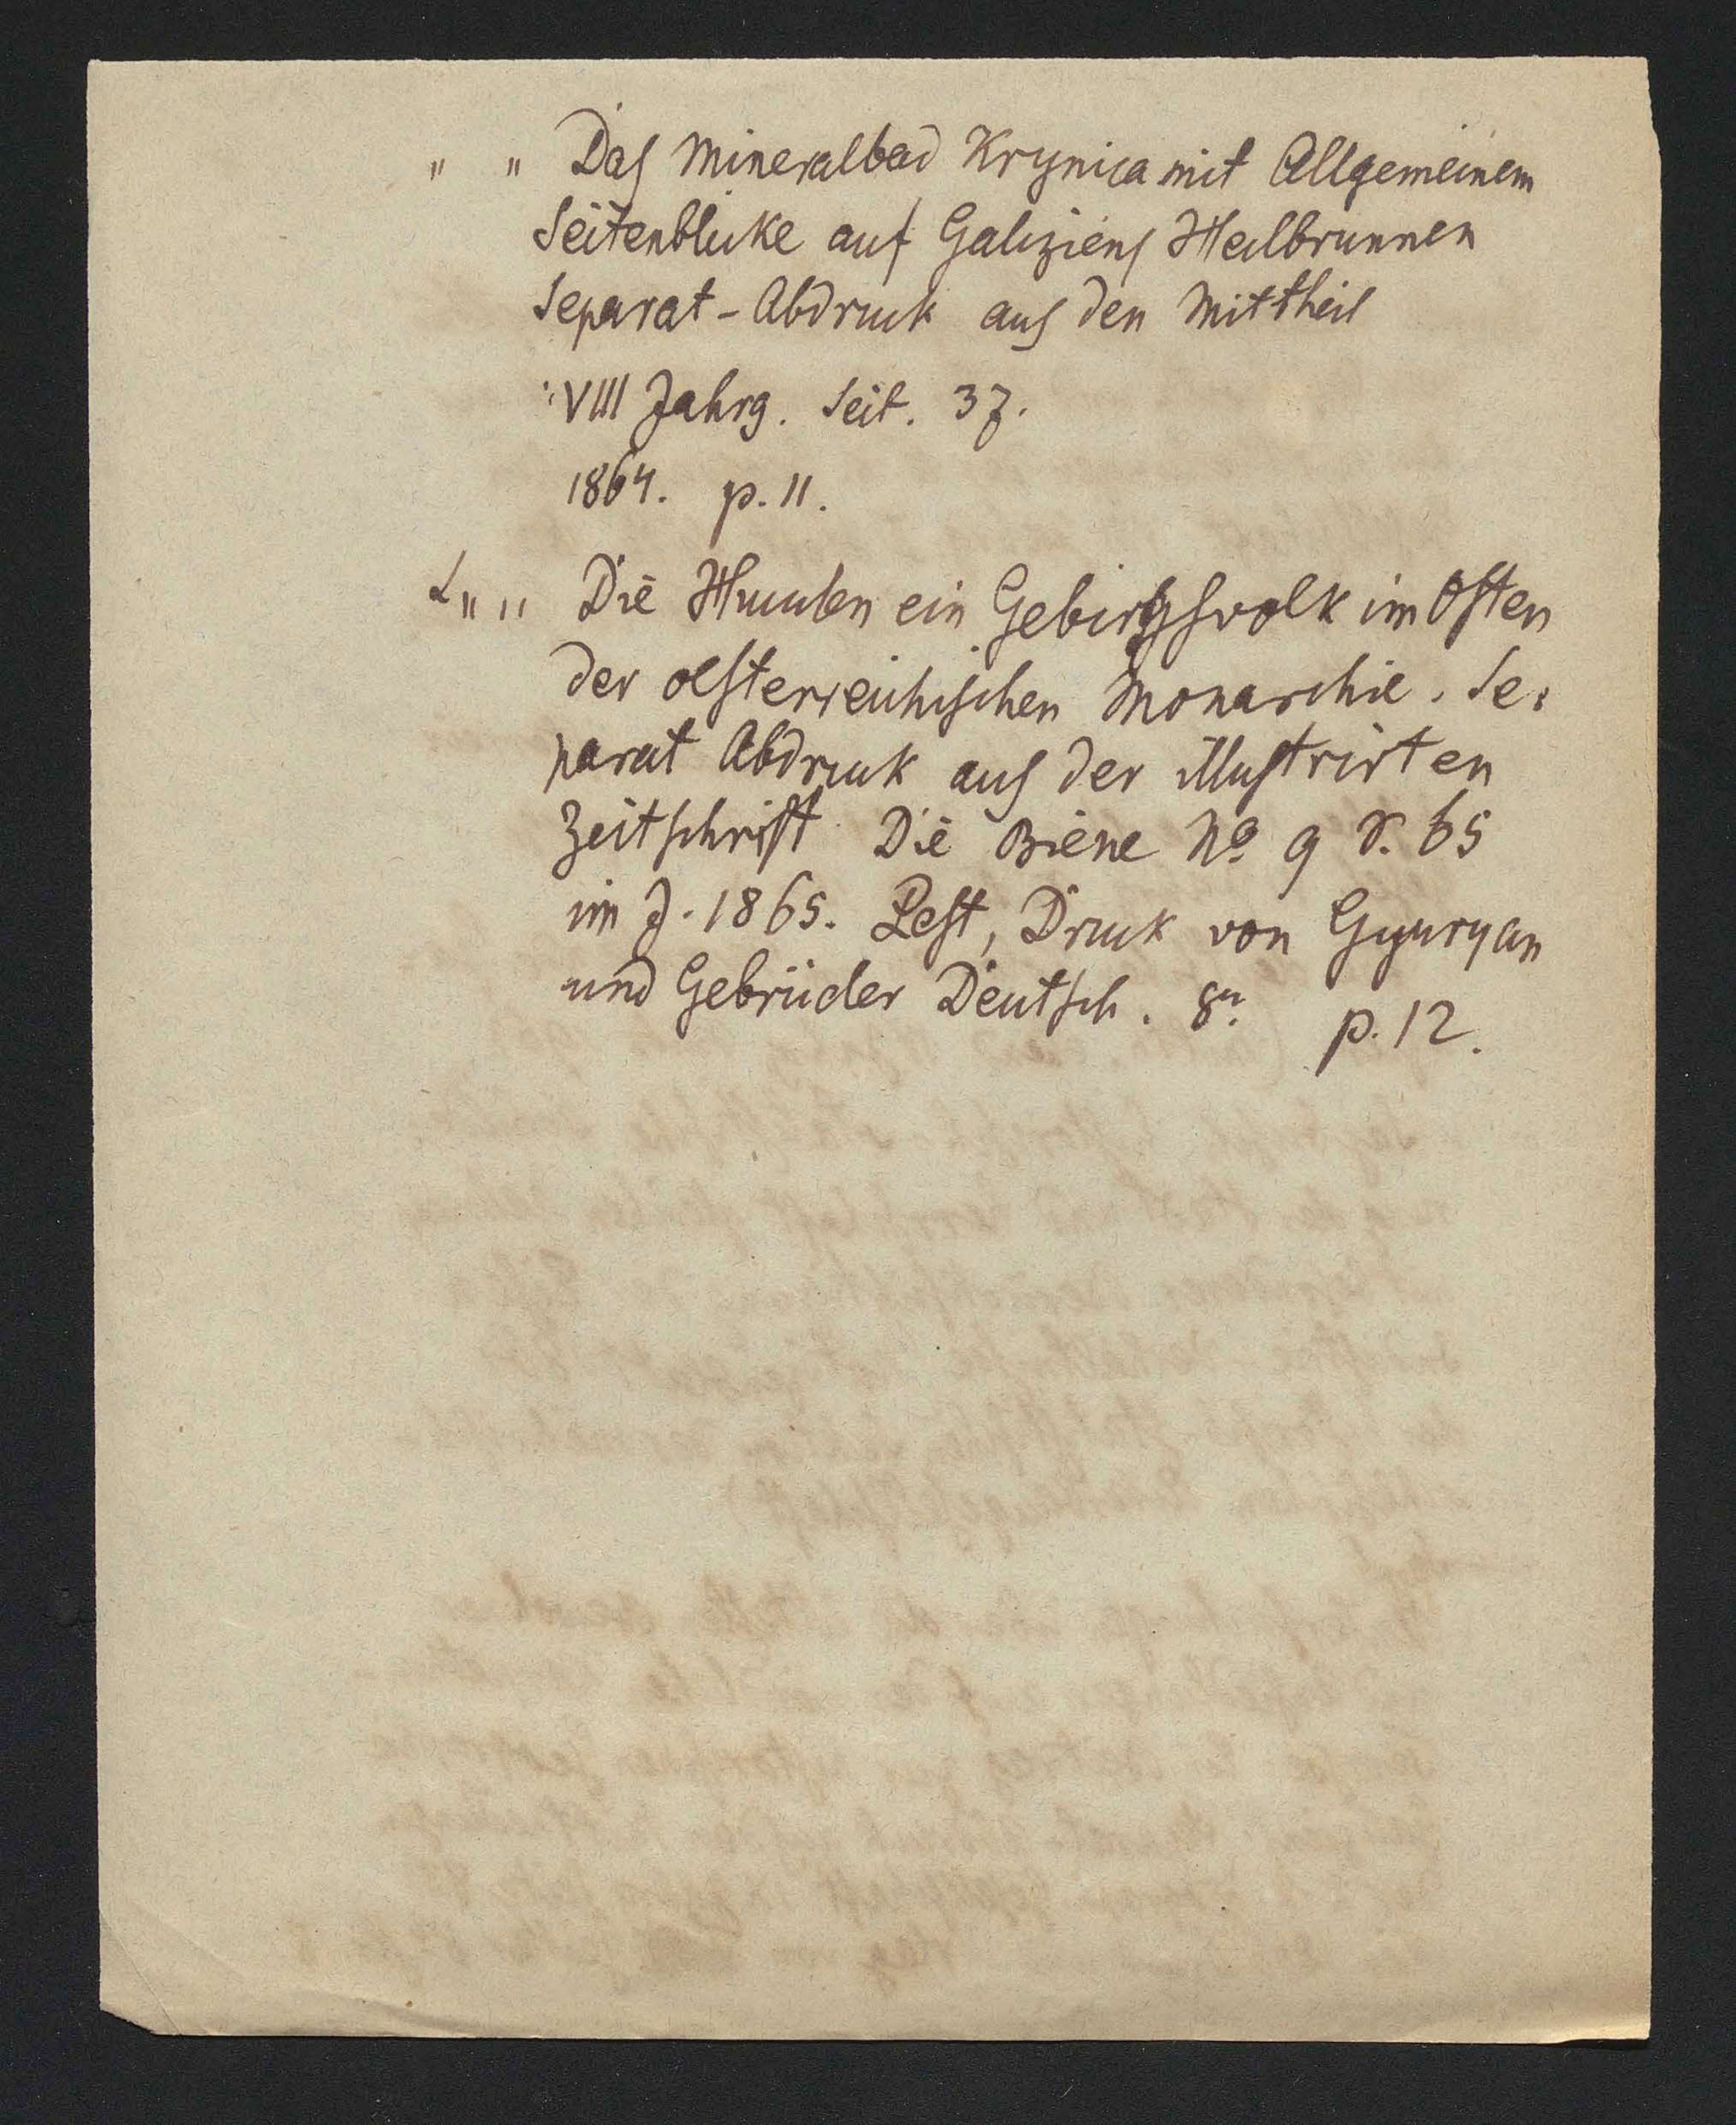 " " Das Mineralbad Krynica mit Allgemeinem
Seitenblicke auf Galiziens Heilbrunnen
Separat-Abdruck aus den Mittheil
VIII Jahrg. Seit. 37.
1864. p. 11.
" " Die ein Gebirgsvolk im Osten
der oesterreichischen Monarchie. Se:
parat Abdruck aus der illustrirten
Zeitschrift Die Biene No 9 v. 65
im J. 1865. Pest, Druck von Gyuryan
und Gebrüder Deutsch. p. 12.